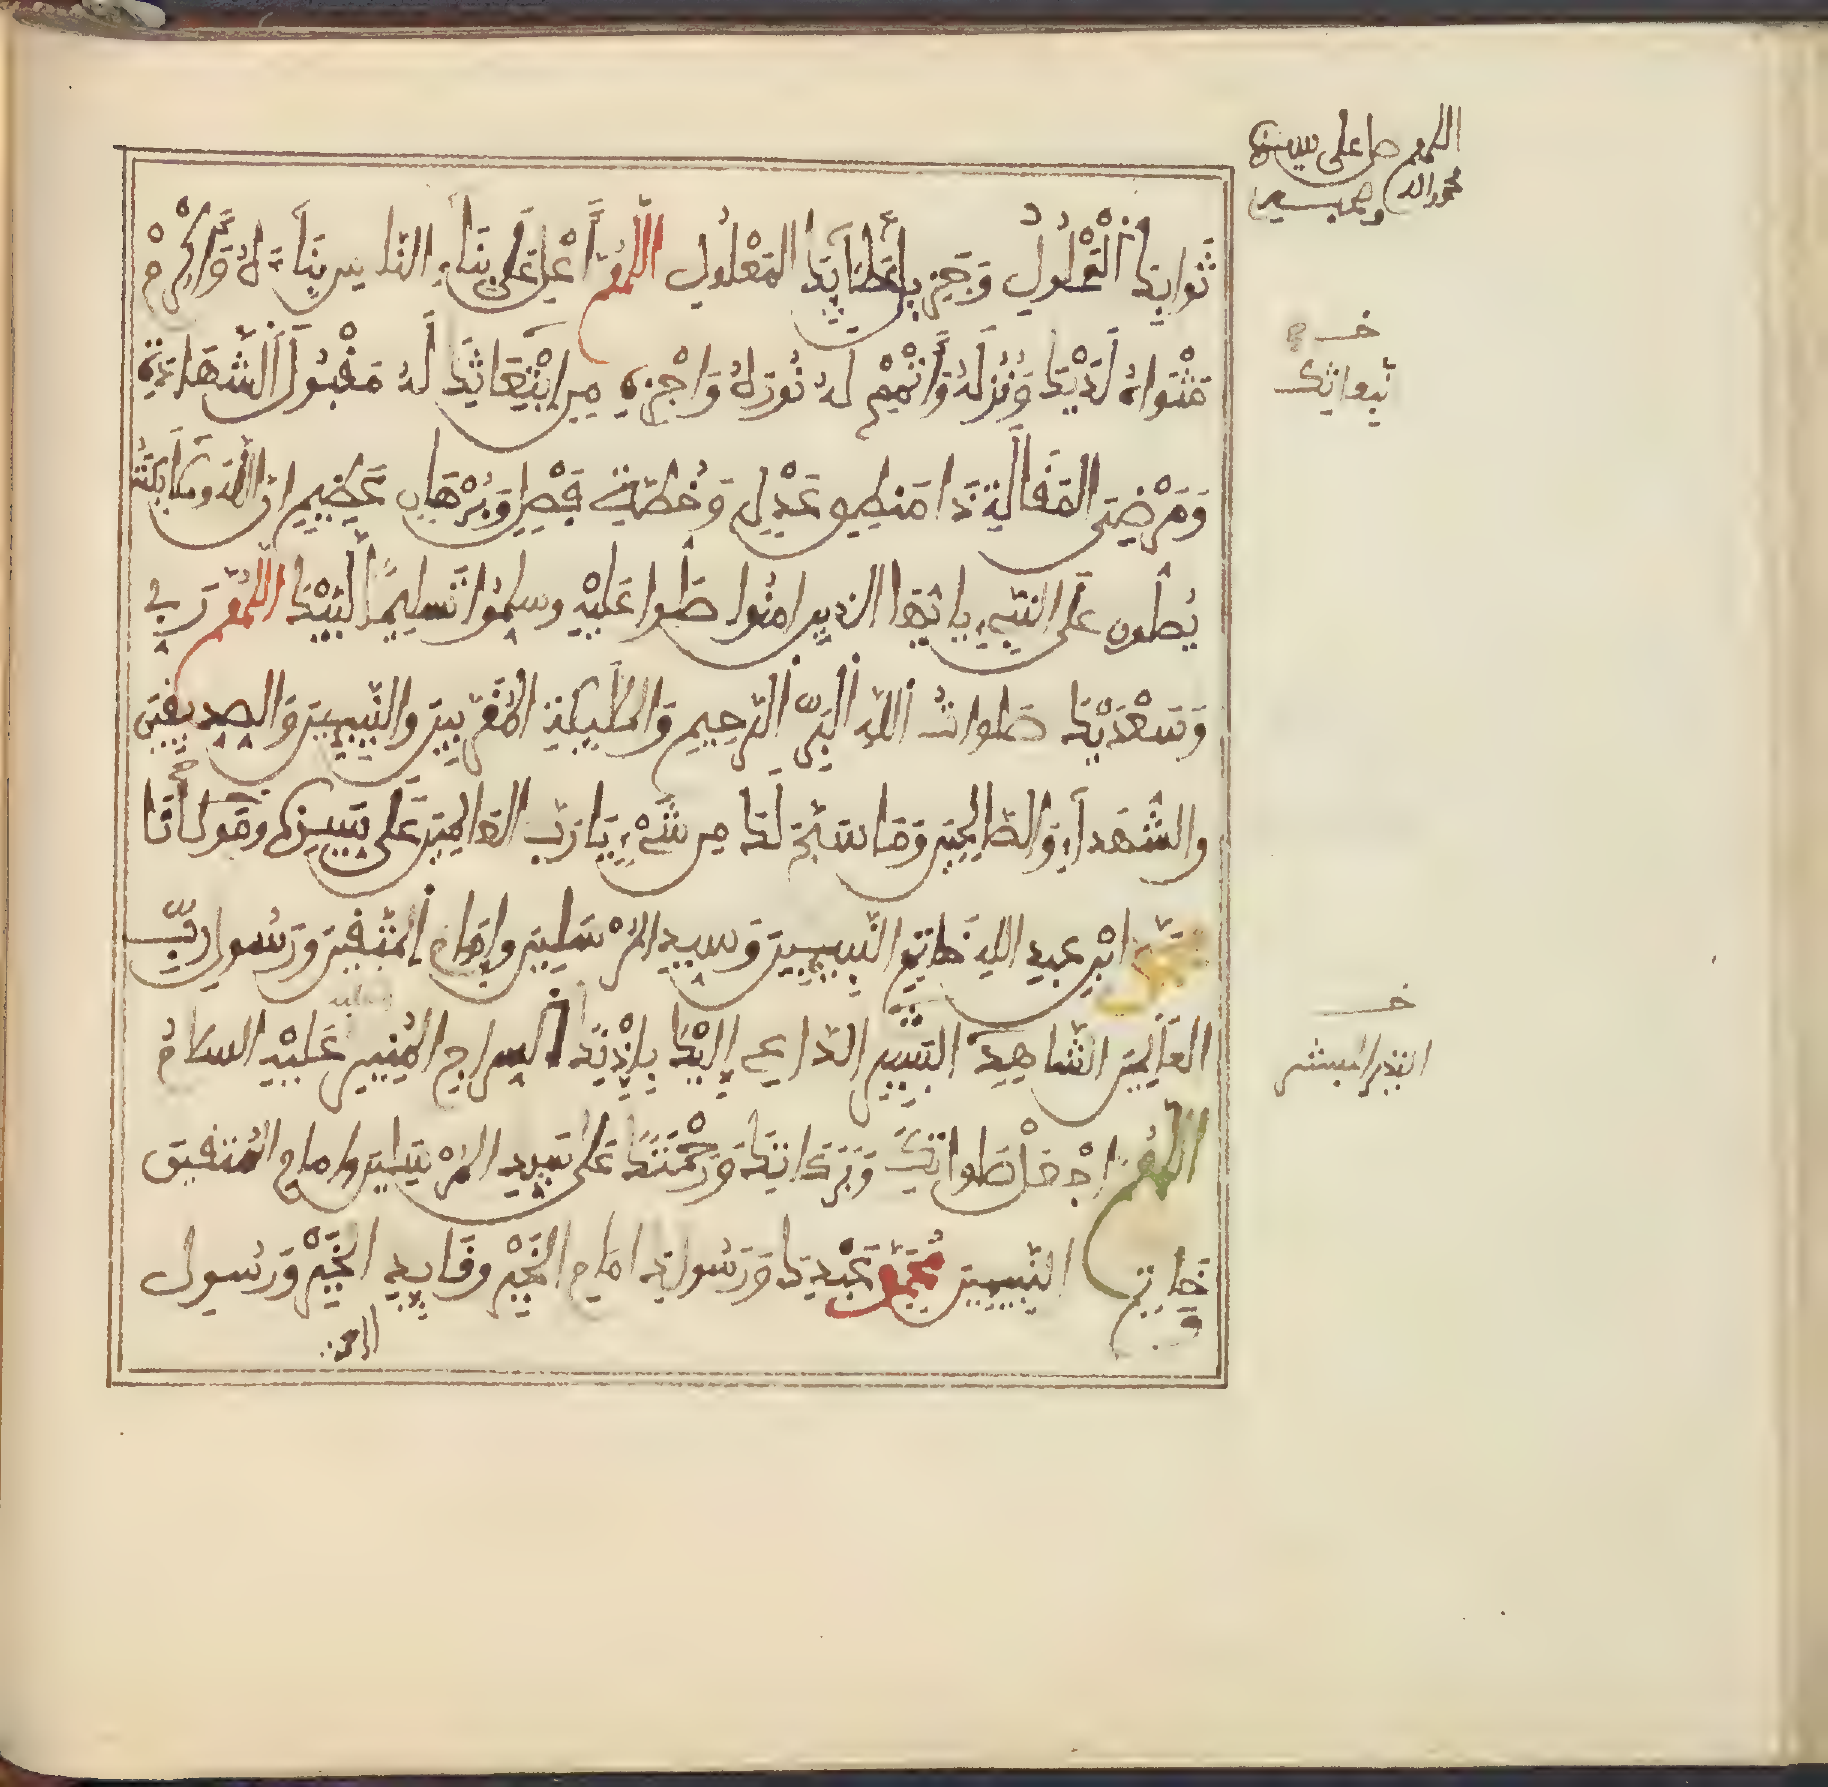 اللهم صل على سيدنا
محمد وآله وصحبه
ثَوَابِكَ الْمَعْلُولِ وَجَزِيلِ عَطَائِكَ الْمَعْلُولِ اللَّهُمَّ أَعْلِ عَلَى بِنَاءِ النَّاسِ بِنَاءَهُ وَأَكْرِمْ
مَثْوَاهُ لَدَيْكَ وَنُزُلَهُ وَأَتْمِمْ لَهُ نُورَهُ وَاجْزِهِ مِنِ ابْتِعَاثِكَ لَهُ مَقْبُولَ الشَّهَادَةِ
خـ
ابتعاثك
وَمَرْضِيَّ الْمَقَالَةِ ذَا مَنْطِقٍ عَدْلٍ وَخُطَّةٍ فَصْلٍ وَبُرْهَانٍ عَظِيمٍ إن الله وملائكته
يُصلون عَلَى النبيء يا أيها الذين امنُوا صَلوا عَلَيْهِ وسلِمُوا تَسْلِيمًا لَبَّيْكَ اللَّهُمَّ رَبِّي
وَسَعْدَيْكَ صَلوات اللهِ الْبَرِّ الرَّحِيمِ وَالْمَلَائِكَةِ الْمُقَرَّبِينَ والنَّبِيئِينَ وَالصِّدِّيقِينَ
والشُّهَدَاءِ وَالصَّالِحِينَ وَمَا سَبَّحَ لَكَ مِن شَيْءٍ يَا رَبَّ الْعَالَمِينَ عَلَى سَيِّدِنَا ومَوْلَانَا
مُحَمَّدِ ابْنِ عَبْدِ اللهِ خَاتِمِ النَّبِيئِينَ وَسَيِّدِ الْمُرْسَلِينَ وإِمَامِ الْمُتَّقِينَ ورَسُولِ رَبِّ
الْعَالَمِينَ الشَّاهِدِ الْبَشِيرِ الدَّاعِي إِلَيْكَ بِإِذْنِكَ السِّرَاجِ الْمُنِيرِ عَلَيْهِ السَّلَامُ
خـ
المبشر
اللَّهُمَّ اجْعَلْ صَلَوَاتِكَ وَبَرَكَاتِكَ وَرَحْمَتَكَ عَلَى سَيِّدِ الْمُرْسَلِينَ وإمام الْمُتَّقِينَ
خَاتِمِ النَّبِيئِينَ مُحَمَّدٍ عَبْدِكَ وَرَسُولِكَ امَامِ الْخَيْرِ وقَائِدِ الْخَيْرِ وَرَسُولِ